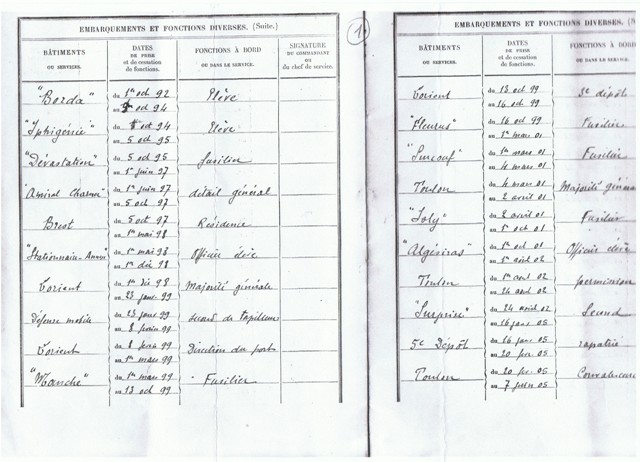 EMBARQUEMENTS ET FONCTIONS DIVERSES. (Suite.)
BÂTIMENTS
OU SERVICES.
DATES
DE PRISE
et de cessation
de fonctions.
FONCTIONS À BORD
OU DANS LE SERVICE.
SIGNATURE
DU COMMANDANT
ou
du chef de service.
"Borda" du 1er oct 92 Elève
au oct 94
"Iphigénie" du oct 94 Elève
au 5 oct 95
"Dévastation" du 5 oct 95 fusilier
au 1er juin 97
"Amiral Charner" du 1er juin 97 détail général
au 5 oct 97
Brest du 5 oct 97 Résidence
au 1er mai 98
du 1er mai 98 Officier élève
au 1er déc 98
Lorient du 1er déc 98 Majorité générale
au 23 janv 99
Défense mobile du 23 janv 99 second de torpilleur
au 8 février 99
Lorient du 8 février 99 Direction du port
au 1er mars 99
"Manche" du 1er mars 99 Fusilier
au 13 oct 99
1
EMBARQUEMENTS ET FONCTIONS DIVERSES. (S
BÂTIMENTS
OU SERVICES.
DATES
DE PRISE
et de cessation
de fonctions.
FONCTIONS À BORD
OU DANS LE SERVICE.
Lorient du 13 oct 99 3e dépôt
au 16 oct 99
"Fleurus" du 16 oct 99 Fusilier
au 1er mars 01
"Surcouf" du 1er mars 01 Fusilier
au 4 mars 01
Toulon du 4 mars 01 Majorité générale
au 2 avril 01
"Joly" du 2 avril 01 Fusilier
au 1er oct 01
"Algésiras" du 1er oct 01 Officier élève
au 1er août 02
Toulon du 1er avril 02 permission
au 24 août 02
"Surprise" du 24 août 02 Second
au 16 janv 05
5e Dépôt du 16 janv 05 rapatrié
au 20 fév 05
Toulon du 20 fév 05
au 7 juin 05